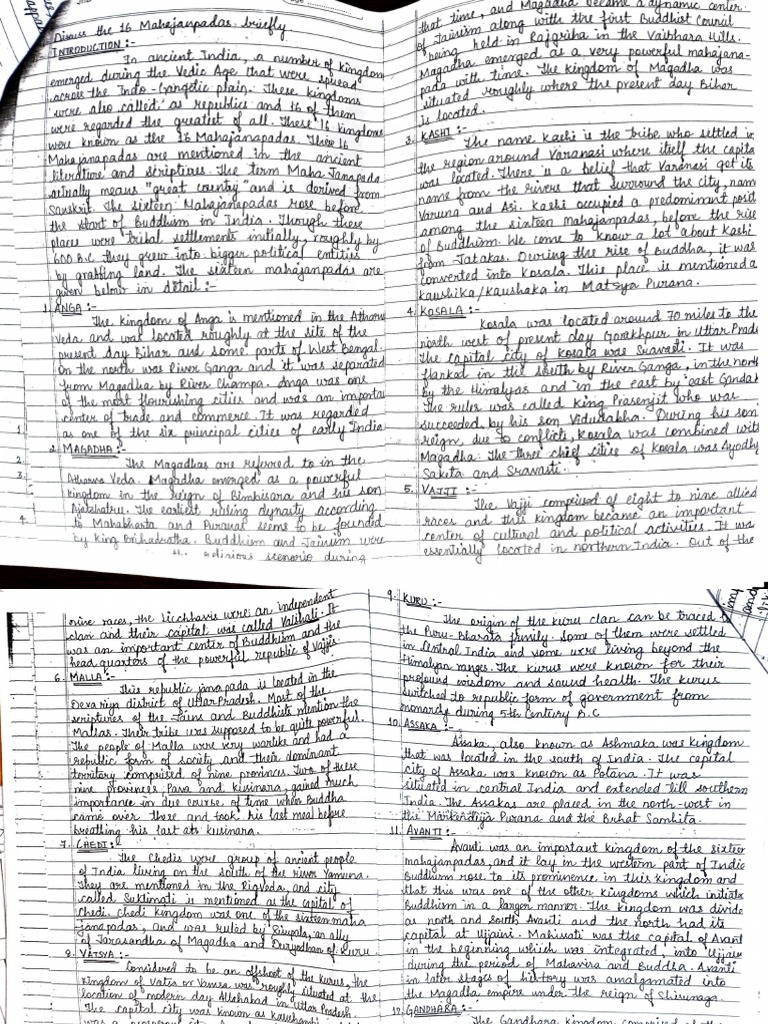 Discuss the 16 Mahajanpadas briefly
INTRODUCTION :-
In ancient India, a number of kingdom
emerged during the Vedic Age that were spread
across the Indo-Gangetic plain. These kingdoms
were also called as republics and 16 of them
were regarded the greatest of all. These 16 kingdoms
were known as the 16 Mahajanapadas. These 16
Mahajanapadas are mentioned in the ancient
literature and scriptures. The term Maha Janapada
actually means "great country" and is derived from
Sanskrit. The sixteen Mahajanapadas rose before
the start of Buddhism in India. Though these
places were tribal settlements initially, roughly by
600 B.C they grew into bigger political entities
by grabbing land. The sixteen mahajanpadas are
given below in detail :-
1. ANGA :-
The kingdom of Anga is mentioned in the Atharva
Veda and was located roughly at the site of the
present day Bihar and some parts of West Bengal.
On the north was River Ganga and it was separated
from Magadha by River Champa. Anga was one
of the most flourishing cities and was an importa
center of trade and commerce. It was regarded
as one of the six principal cities of early India
2. MAGADHA :-
The Magadhas are referred to in the
Atharva Veda. Magadha emerged as a powerful
kingdom in the reign of Bimbisara and his son
Ajatshatru. The earliest ruling dynasty according
to Mahabharta and Puranas seems to be founded
by king Brihadratha. Buddhism and Jainism were
the religious scenario during
that time, and Magadha became a dynamic center
of Jainism along with the first Buddhist Council
being held in Rajgriha in the Vaibhara Hills.
Magadha emerged as a very powerful mahajana-
pada with time. The kingdom of Magadha was
situated roughly where the present day Bihar
is located.
3. KASHI :-
The name Kashi is the tribe who settled in
the region around Varanasi where itself the capita
was located. There is a belief that Varanasi got its
name from the rivers that surround the city, nam
Varuna and Asi. Kashi occupied a predominant posit
among the sixteen mahajanpadas, before the rise
of Buddhism. We come to know a lot about Kashi
from Jatakas. During the rise of Buddha, it was
converted into Kosala. This place is mentioned a
Kaushika/Kaushaka in Matsya Purana.
4. KOSALA :-
Kosala was located around 70 miles to the
north west of present day Gorakhpur in Uttar Prade
The capital city of Kosala was Sravasti. It was
flanked in the south by River Ganga, in the north
by the Himalyas and in the east by east Gandak
The ruler was called King Prasenjit who was
succeeded by his son Vidudabha. During his son
reign, due to conflicts, Kosala was combined with
Magadha. The three chief cities of Kosala was Ayodhy
Saketa and Sravasti.
5. VAJJI :-
The Vajji comprised of eight to nine allied
races and this kingdom became an important
center of cultural and political activities. It was
essentially located in northern India. Out of the
nine races, the Licchhavis were an independent
clan and their capital was called Vaishali. It
was an important center of Buddhism and the
head quarters of the powerful republic of Vajjis.
6. MALLA :-
This republic janapada is located in the
Devariya district of Uttar Pradesh. Most of the
scriptures of the Jains and Buddhists mention the
Mallas. Their tribe was supposed to be quite powerful.
The people of Malla were very warlike and had a
republic form of society and their dominant
territory comprised of nine provinces. Two of these
nine provinces, Pava and Kusinara, gained much
importance in due course of time when Buddha
came over there and took his last meal before
breathing his last at Kusinara.
7. CHEDI :-
The Chedis were group of ancient people
of India living on the south of the river Yamuna.
They are mentioned in the Rigveda, and city
called Suktimati is mentioned as the capital of
Chedi. Chedi kingdom was one of the sixteen maha
janapadas, and was ruled by Sisupala, an ally
of Jarasandha of Magadha and Duryodhan of Kuru.
8. VATSYA :-
Considered to be an offshoot of the Kurus, the
kingdom of Vatsa or Vamsa was roughly situated at the
location of modern day Allahabad in Uttar Pradesh
The capital city was known as Kaushambi
was a prosperous
9. KURU :-
The origin of the Kuru clan can be traced to
the Puru-Bharata family. Some of them were settled
in Central India and some were living beyond the
Himalyan ranges. The Kurus were known for their
profound wisdom and sound health. The Kurus
switched to republic form of government from
monarchy during 5th Century B.C
10. ASSAKA :-
Assaka, also known as Ashmaka was kingdom
that was located in the south of India. The capital
city of Assaka was known as Potana. It was
situated in central India and extended till southern
India. The Assakas are placed in the north-west in
the Markendiya Purana and the Brhat Samhita.
11. AVANTI :-
Avanti was an important kingdom of the sixteen
mahajanpadas, and it lay in the western part of India
Buddhism rose to its prominence in this kingdom and
that this was one of the other kingdoms which initiate
Buddhism in a larger manner. The kingdom was divide
as north and south Avanti and the north had its
capital at Ujjaini. Mahissati was the capital of Avanti
in the beginning which was integrated, into Ujjain
during the period of Mahavira and Buddha. Avanti
in later stages of history was amalgamated into
the Magadha empire under the reign of Shisunaga.
12. GANDHARA :-
The Gandhara kingdom comprised of the